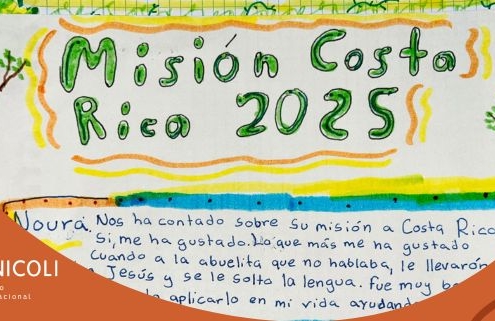 Misión Costa
Rica 2025
Noura. Nos ha contado sobre su misión a Costa Rica
Si, me ha gustado. Lo que más me ha gustado
cuando a la abuelita que no hablaba, le llevarón
a Jesús y se le solto la lengua. fue muy
aplicarlo en mi vida ayudando
NICOLI